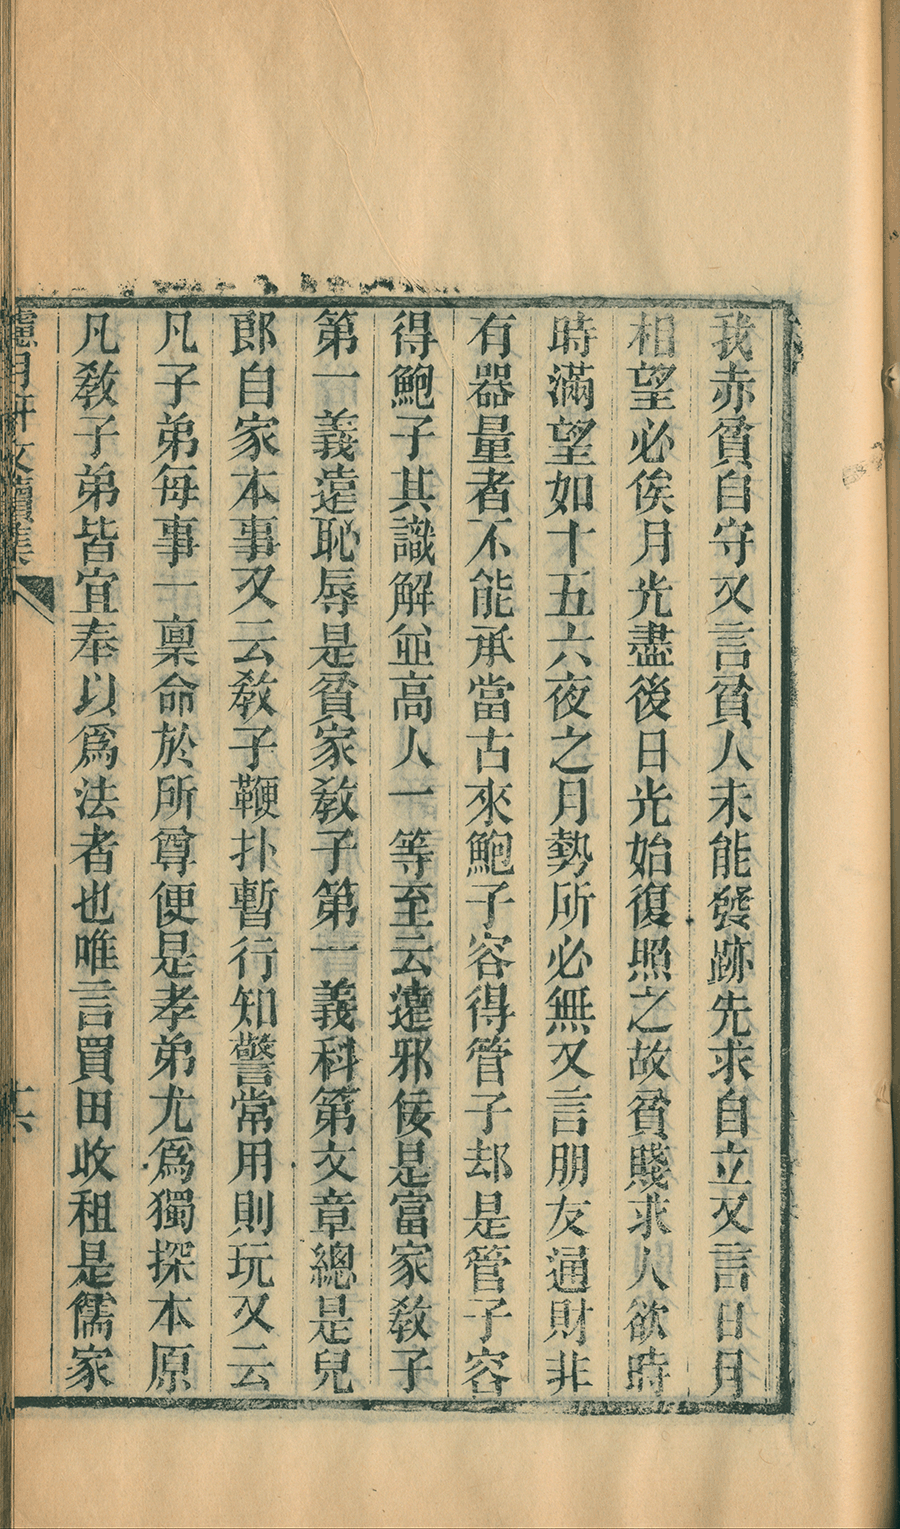 我赤貧自守又言貧人未能發跡先求自立又言日月
相望必俟月光盡後日光始復照之故貧賤求人欲時
時滿望如十五六夜之月勢所必無又言朋友通財非
有器量者不能承當古來鮑子容得管子却是管子容
得鮑子其識解並高人一等至云遠邪佞是富家敎子
第一義遠恥辱是貧家敎子第一義科第文章總是兒
郎自家本事又云敎子鞭扑暫行知警常用則玩又云
凡子弟每事一稟命於所尊便是孝弟尤爲獨探本原
凡敎子弟皆宜奉以爲法者也唯言買田收租是儒家
月研文續集
十六